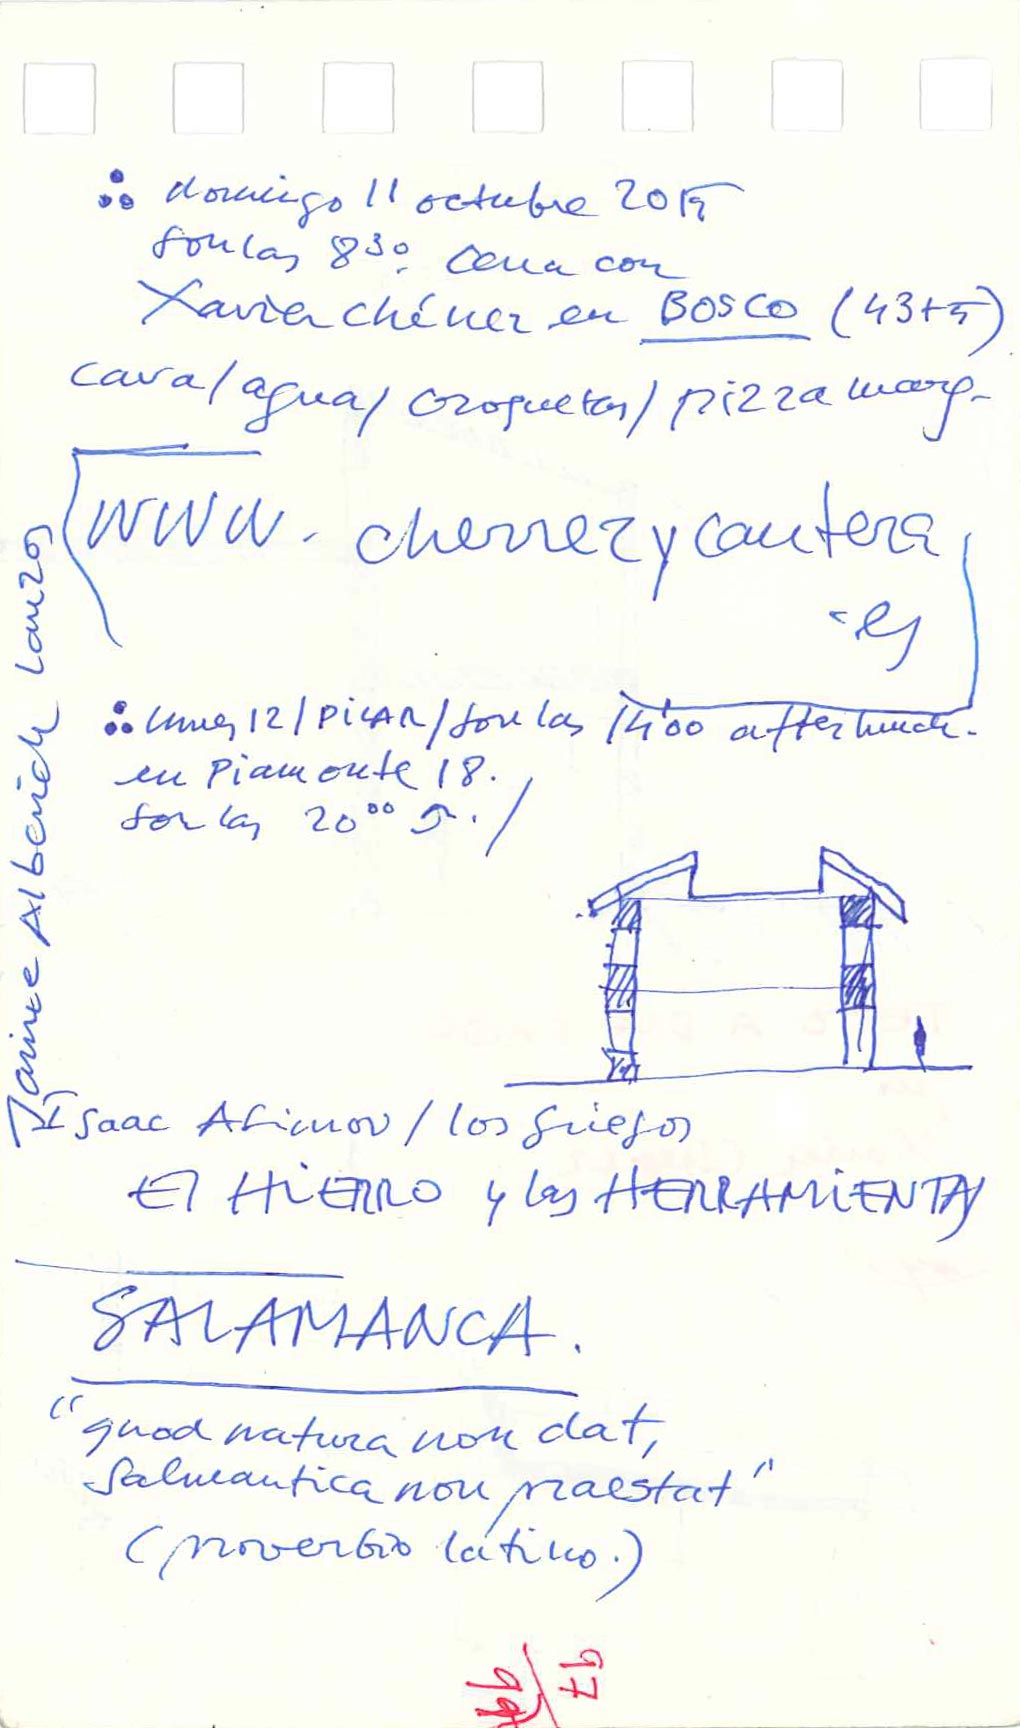 domingo 11 octubre 2015
son las 8³⁰. Cena con
Xavier Chérrez en BOSCO (43+5)
cava/agua/croquetas/pizza marg.
www.cherrezycantera
.es
lunes 12/PILAR/son las 14'00 afterlunch.
en Piamonte 18.
son las 20⁰⁰ /
Jaime Alberich Lanzos
Isaac Asimov/los griegos
El HiERRO y las HERRAMiENTAS
SALAMANCA.
"quod natura non dat,
Salmantica non praestat"
(proverbio latino.)
97